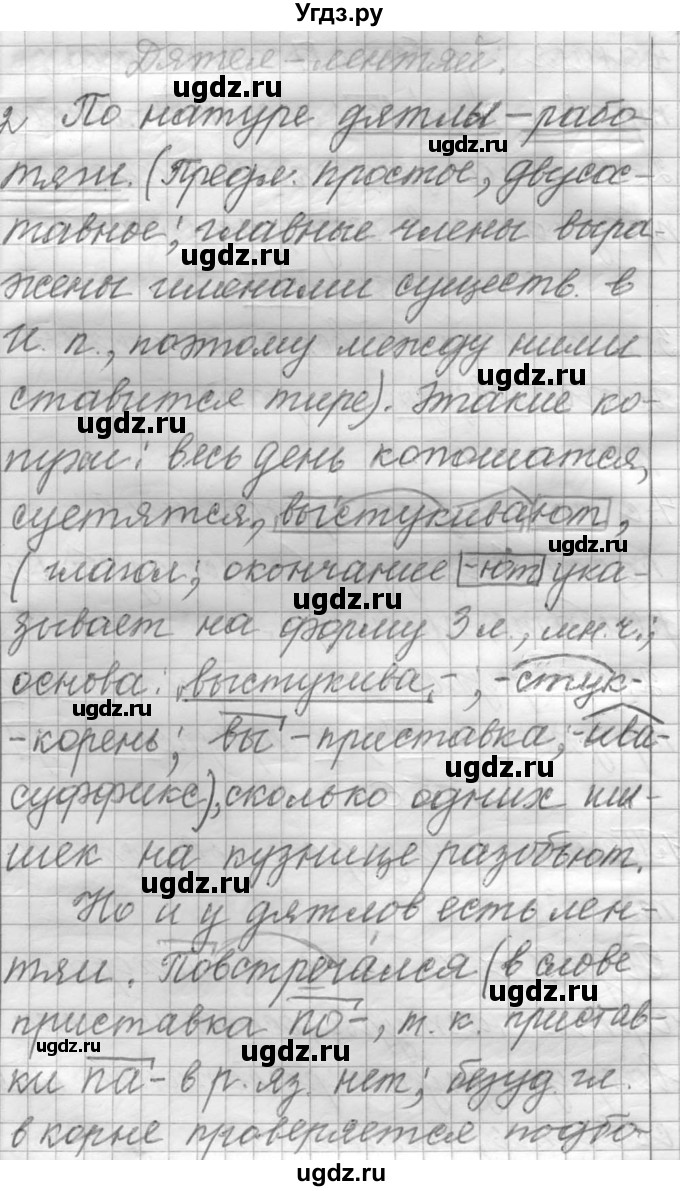 Угдз.ру
Дятел-лентяй.
ugdz.ru
2 По натуре дятлы - рабо-
ugdz.ru
тяги. (Предл. простое, двусос-
тавное; главные члены выра-
ugdz.ru
жены именами существ. в
И. п., поэтому между ними
ugdz.ru
ставится тире). Этакие ко-
ugdz.ru
пуши: весь день копошатся,
суетятся, выстукивают,
ugdz.ru
(глагол; окончание -ют ука-
ugdz.ru
зывает на форму 3 л., мн. ч.;
основа: выстукива-; -стук-
ugdz.ru
-корень; вы-приставка; -ива-
ugdz.ru
суффикс), сколько одних ши-
шек на кузнице разобьют.
ugdz.ru
Но и у дятлов есть лен-
тяи. Повстречался (в слове
ugdz.ru
приставка по-, т. к. пристав-
ugdz.ru
ugdz.ru
ки па- в р. яз. нет; безуд. гл.
в корне проверяется подбо-
ugdz.ru